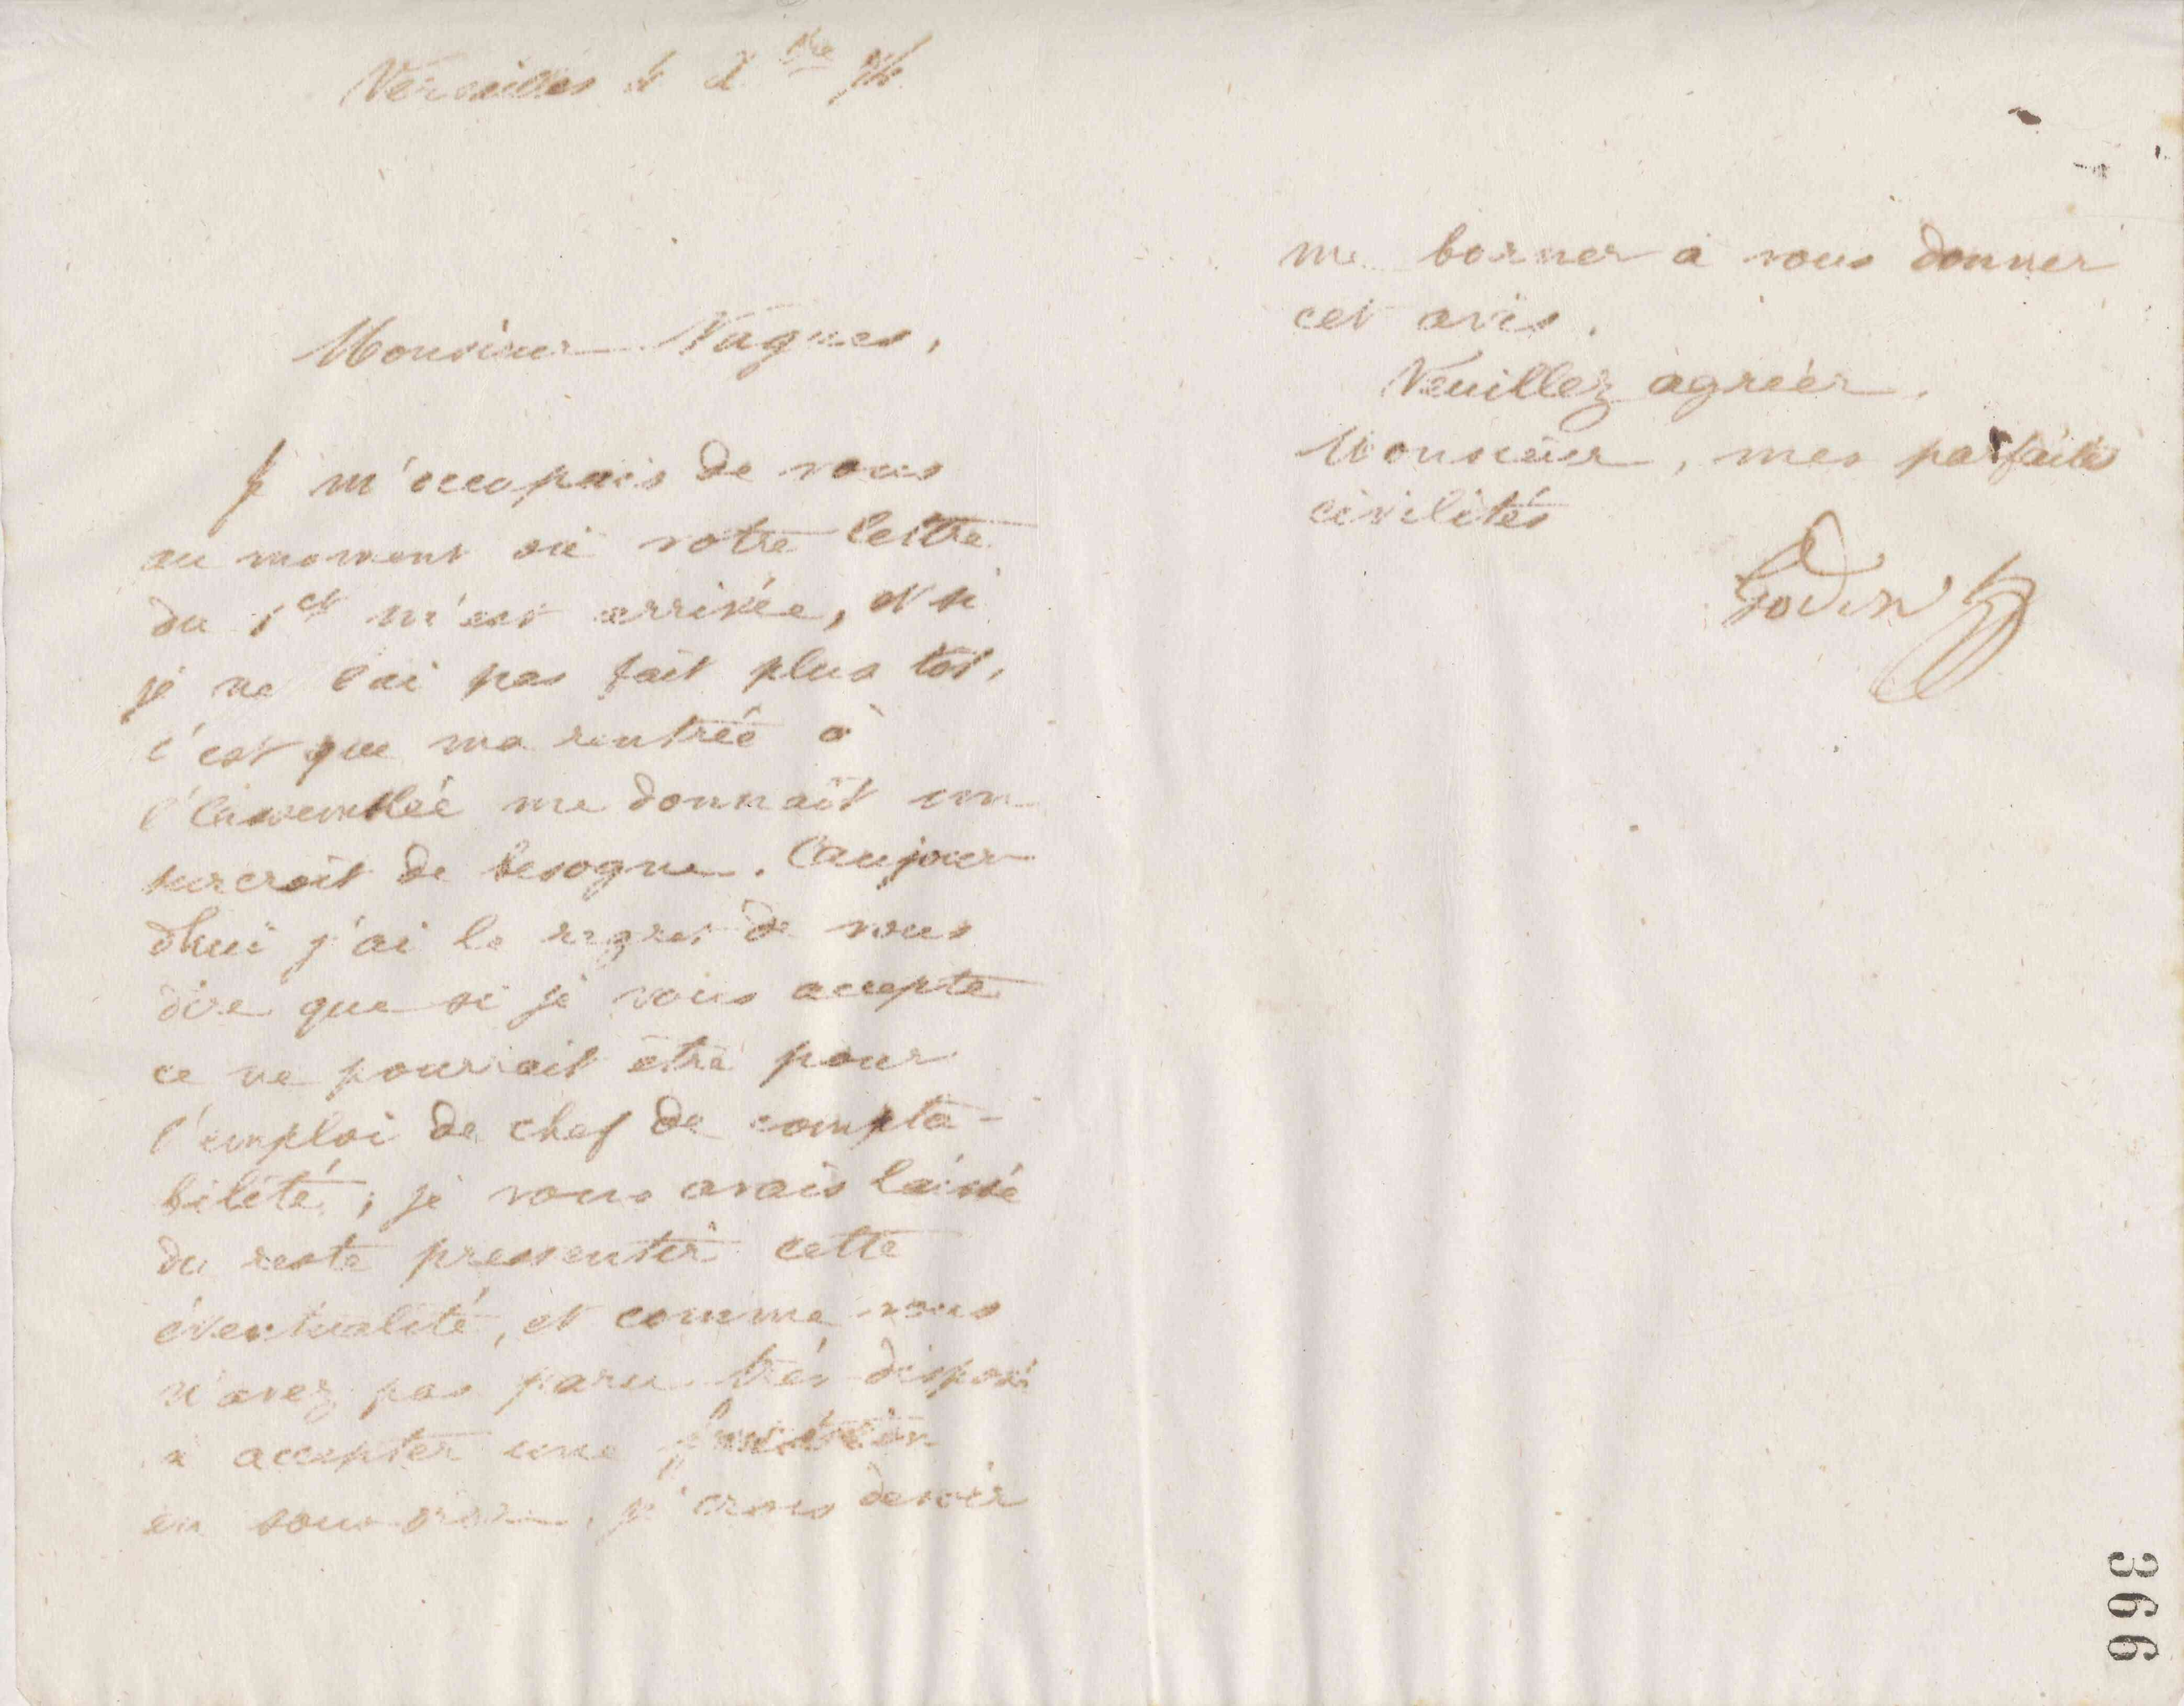 Versailles le X bre 74
Monsieur Nagues,
Je m'occupais de vous
au moment où votre lettre
du 1er m'est arrivée, et si
je ne l'ai pas fait plus tôt,
c'est que ma rentrée à
l'assemblée me donnait un
surcroit de besogne. Aujour
d'hui j'ai le regret de vous
dire que si je vous accepte
ce ne pourrait être pour
l'emploi de chef de compta-
bilité ; je vous avais laissé
du reste pressentir cette
éventualité, et comme vous
n'avez pas paru très disposé
à accepter une fonction
en sous ordre, je crois devoir
me borner à vous donner
cet avis.
Veuillez agréer,
Monsieur, mes parfaites
civilités
Godin
366